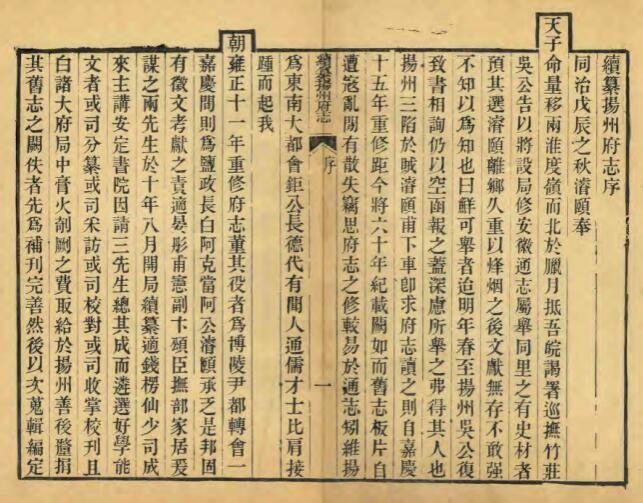 續纂揚州府志序
同治戊辰之秋濬頤奉
天子命量移兩淮度嶺而北於臘月抵吾皖謁署巡撫竹莊
吳公告以將設局修安徽通志屬舉同里之有史材者
預其選濬頤離鄉久重以烽烟之後文獻無存不敢强
不知以爲知也曰鮮可舉者迨明年春至揚州吳公復
致書相詢仍以空函報之蓋深慮所舉之弗得其人也
揚州三陷於賊濬頤甫下車卽求府志讀之則自嘉慶
十五年重修距今將六十年紀載闕如而舊志板片自
遭寇亂閒有散失竊思府志之修較易於通志矧維揚
續纂揚州府志 序 一
爲東南大都會鉅公長德代有聞人通儒才士比肩接
踵而起我
朝雍正十一年重修府志董其役者爲博陵尹都轉會一
嘉慶間則爲鹽政長白阿克當阿公濬頤承乏是邦固
有徵文考獻之責適晏彤甫憲副卞頌臣撫部家居爰
謀之兩先生於十年八月開局續纂適錢楞仙少司成
來主講安定書院因請三先生總其成而遴選好學能
文者或司分纂或司采訪或司校對或司收掌校刊且
白諸大府局中膏火剞劂之費取給於揚州善後釐捐
其舊志之闕佚者先爲補刊完善然後以次蒐輯編定